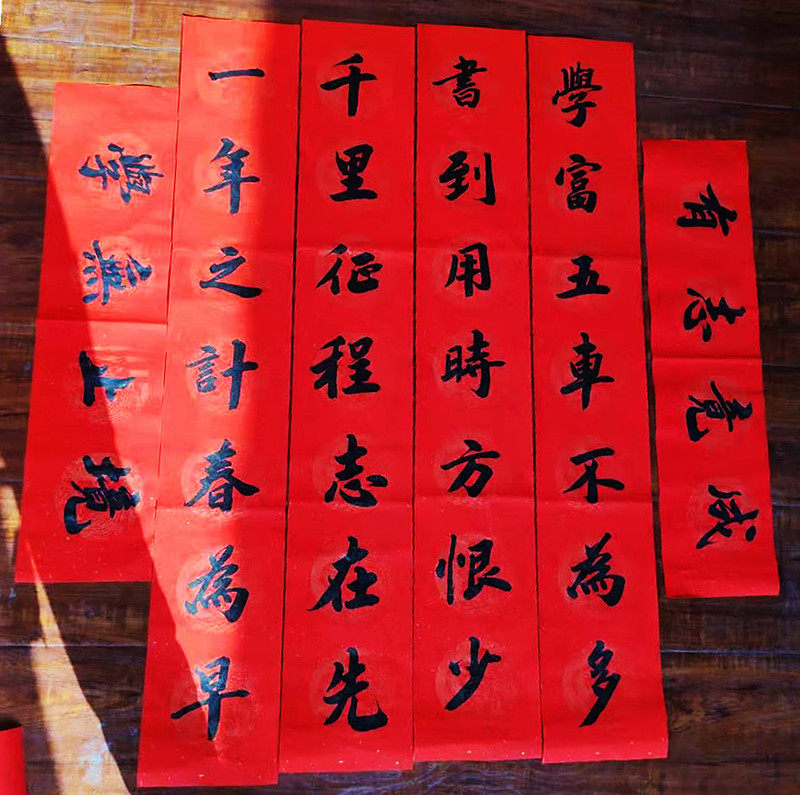 學無止境
一年之計春為早
千里征程志在先
書到用時方恨少
學富五車不為多
有志竟成